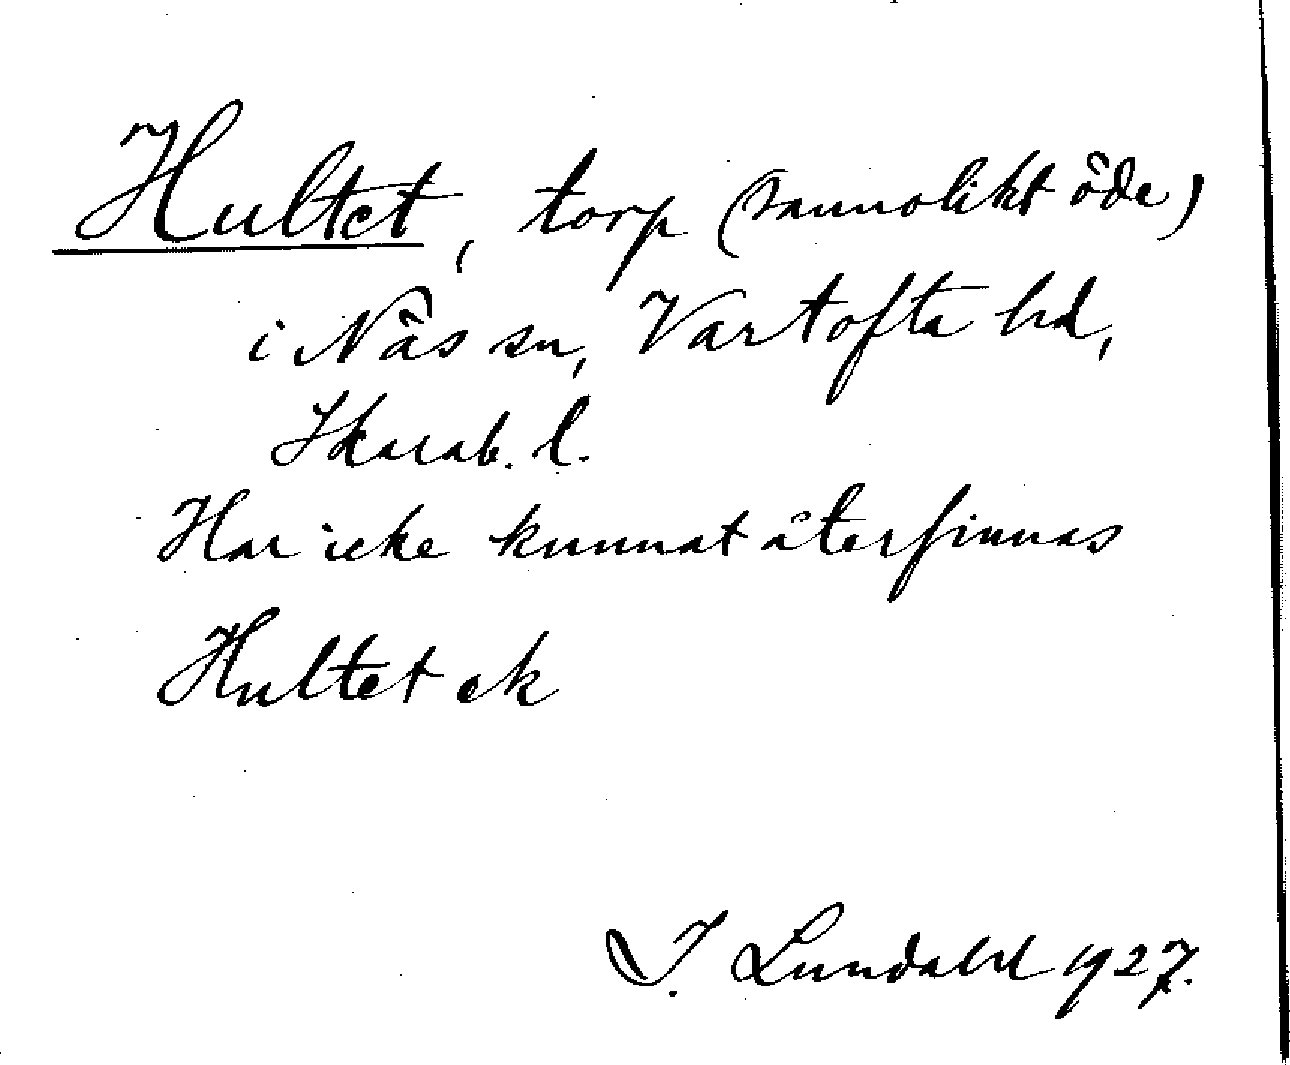 Hultet, torp (sannolikt öde)
i Näs sn, Vartofta hd,
Skarab. l.
Har icke kunnat återfinnas
Hultet ek
I. Lundahl 1927.